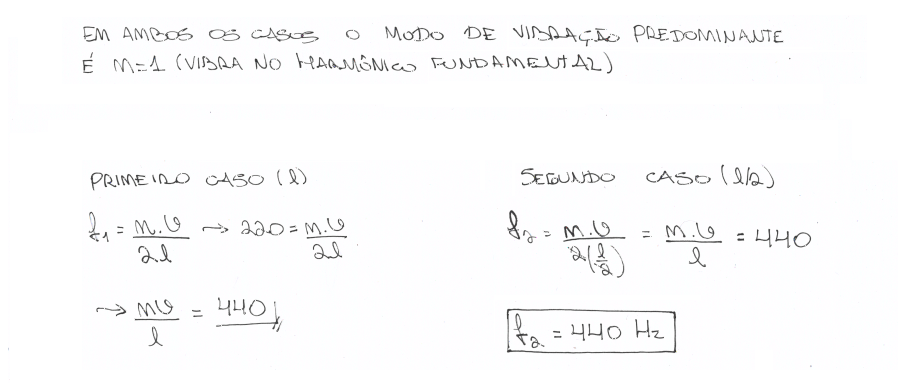 EM AMBOS OS CASOS O MODO DE VIBRAÇÃO PREDOMINANTE
É n=1 (VIBRA NO HARMÔNICO FUNDAMENTAL)
PRIMEIRO CASO (l)
f₁ = n.v/2l → 220 = n.v/2l
→ nv/l = 440
SEGUNDO CASO (l/2)
f₂ = n.v/2(l/2) = n.v/l = 440
f₂ = 440 Hz